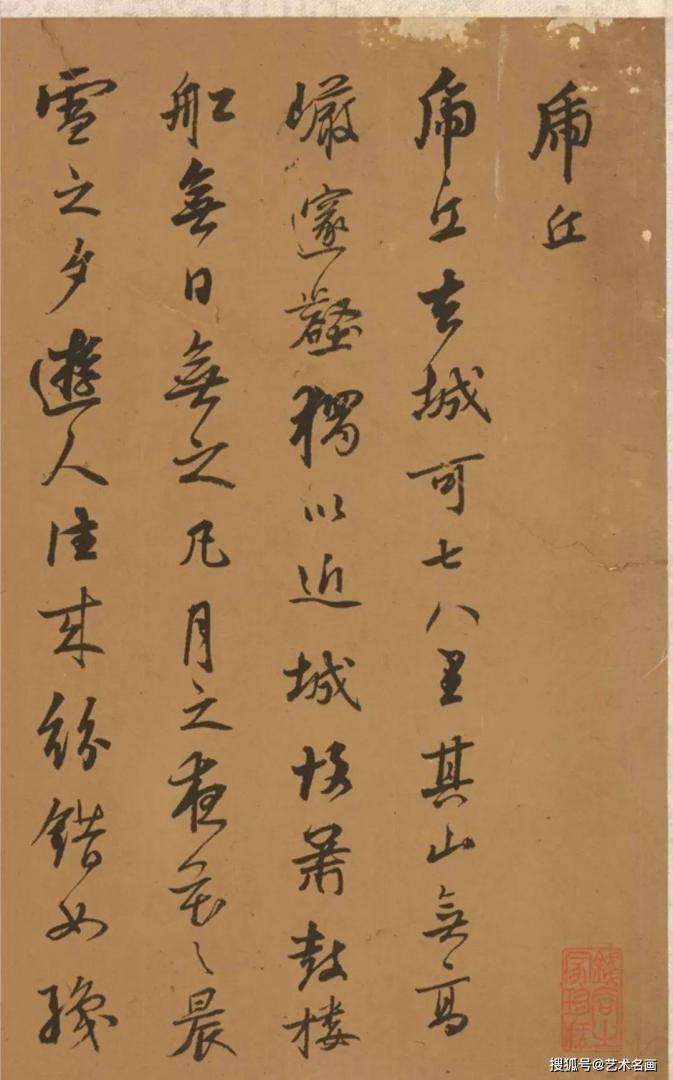 虎丘
虎丘去城可七八里其山無高
巖邃壑獨以近城故蕭鼓樓
船無日無之凡月之夜花之晨
雪之夕遊人往來紛錯如繡
搜狐号@艺术名画